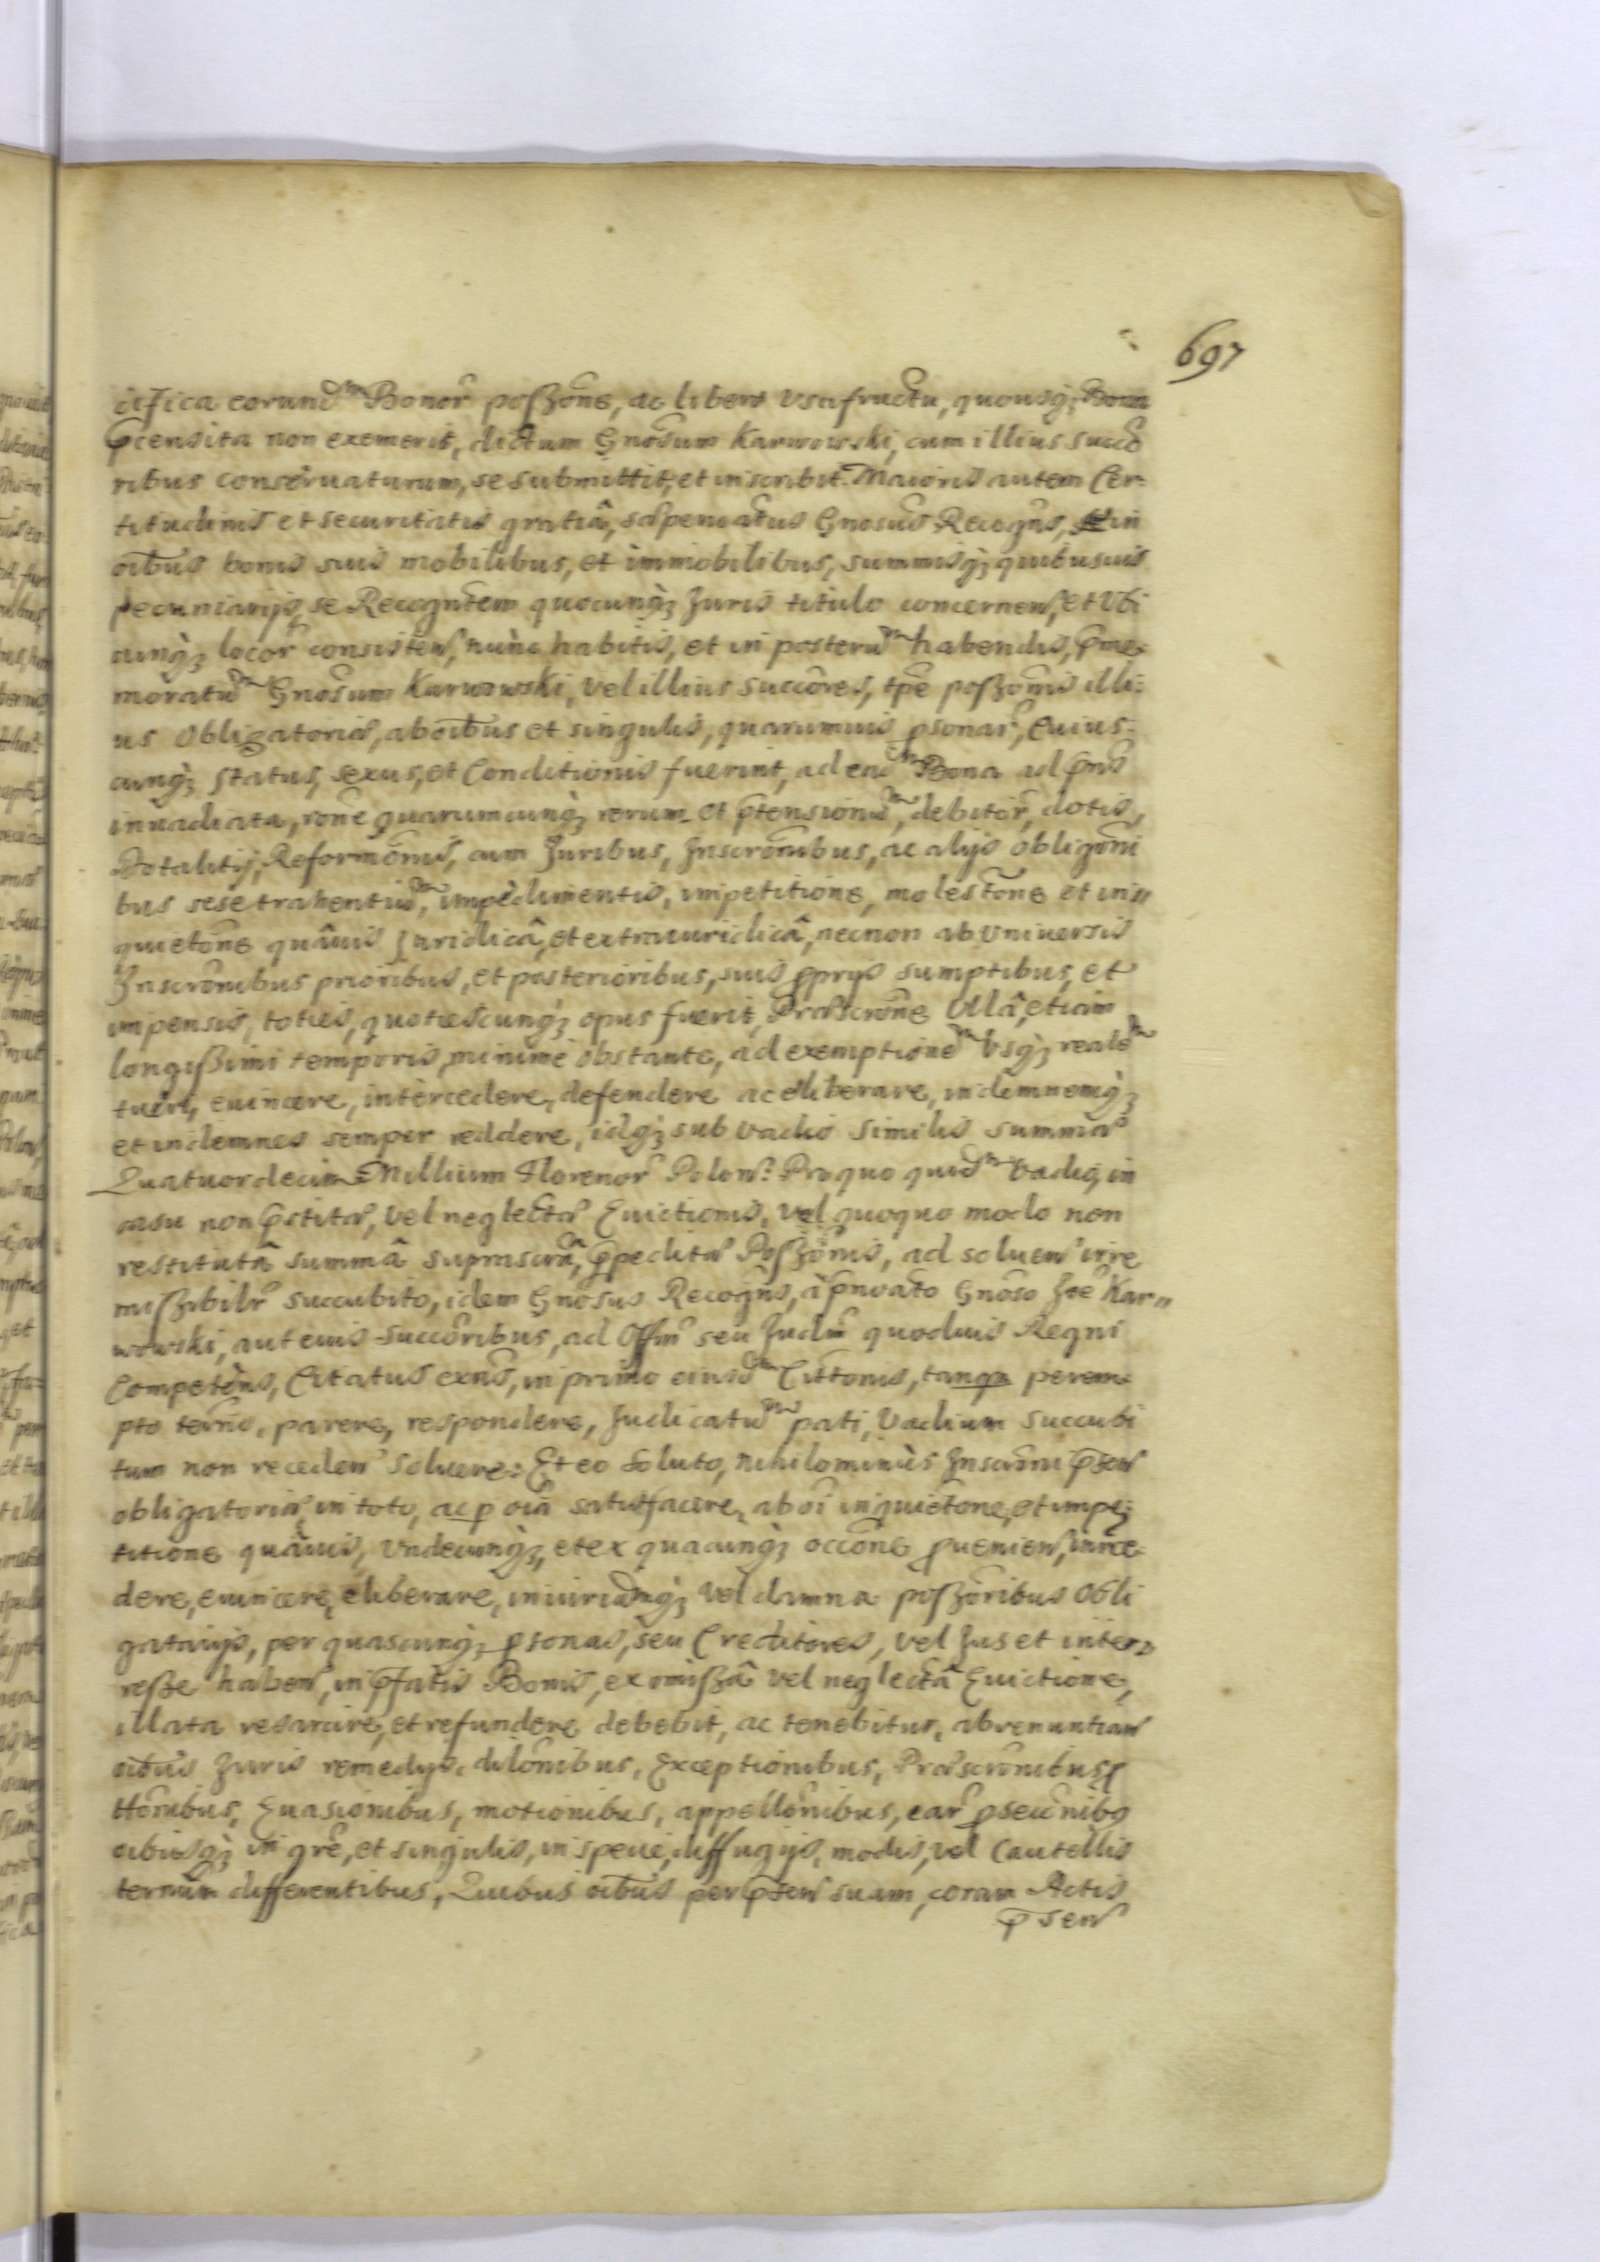 697
cifica eorundem Bonor possone, ac libero Usufructu, quousq; Bona
precensita non exemerit, dictum Gnosum Karwowski, cum illius succo
ribus conservaturum, se submittit, et inscribit. Maioris autem Cer:
titudinis et securitatis gratiâ, Gnosus Recogns, in
oibus bonis suis mobilibus, et immobilibus, summisq; quibusvis
pecuniarijs, se Recogntem quocunq; Juris titulo concernen, et Ubi
cunq; locor consisten, nunc habitis, et in posterum habendis, pme:
moratum Gnosum Karwowski, vel illius succores, tpe possonis illi:
us Obligatoriæ, ab oibus et singulis, quarumvis psonar, Cuius:
cunq; status, sexus, et Conditionis fuerint, ad eadem Bona ad pns
invadiata, rone quarumcunq; rerum et ptensionum, debitor, dotis,
Dotalitij, Reformonis, cum Juribus, Inscronibus, ac alijs obligoni
bus sese trahentium, impedimentis, impetitione, molestone et in"
quietone quâvis Juridicâ, et extraiuridicâ, necnon ab Universis
Inscronibus prioribus, et posterioribus, suis pprijs sumptibus, et
impensis, toties, quotiescunq; opus fuerit, Præscrone Ullâ, etiam
longissimi temporis, minime obstante, ad exemptionem Usq; realem
tueri, evincere, intercedere, defendere ac eliberare, indemnemq;
et indemnes semper reddere, idq; sub vadio similis summæ
Quatuordecim Millium Florenor Polon. Pro quo quidem Vadio, in
casu non pstitæ, vel neglectæ Evictionis, vel quoquo modo non
restitutâ summâ suprascrâ, peditæ Possonis, ad soluen irre
missibilr succubito, idem Gnosus Recogns, à pnoato Gnoso Joe Kar"
wowski, aut eius succoribus, ad Offm seu Judm quodvis Regni
Competens, Citatus exns, in primo eiusdem Cittonis, tanqm perem:
pto termo, parere, respondere, Judicatum pati, Vadium succubi
tum non receden solvere: Et eo soluto, nihilominùs Inscroni psen
obligatoriæ, in toto, ac p oia satisfacere, ab oi inquietone, et impe:
titione quâvis, Undecunq;, et ex quacunq; occone pvenien, interce:
dere, evincere, eliberare, iniuriamq; vel damna possoribus Obli
gatarijs, per quascunq; psonas, seu Creditores, vel Jus et inter:
resse haben, in pfatis Bonis, ex omissâ vel neglectâ Evictione,
illata resarcire, et refundere debebit, ac tenebitur, abrenuntian
oibus Juris remedijs, dilonibus, Exceptionibus, Præscronibus,
ttonibus, Evasionibus, motionibus, appellonibus, ear psecunibus
oibusq; in gre, et singulis, in specie, diffugijs, modis, vel Cautellis
termum differentibus, Quibus oibus per psen suam, coram Actis
psen